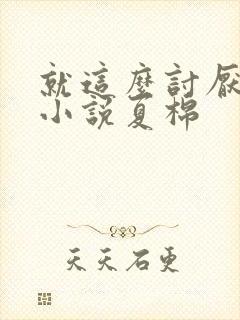 就這麼討厭
小說夏棉
天天石更